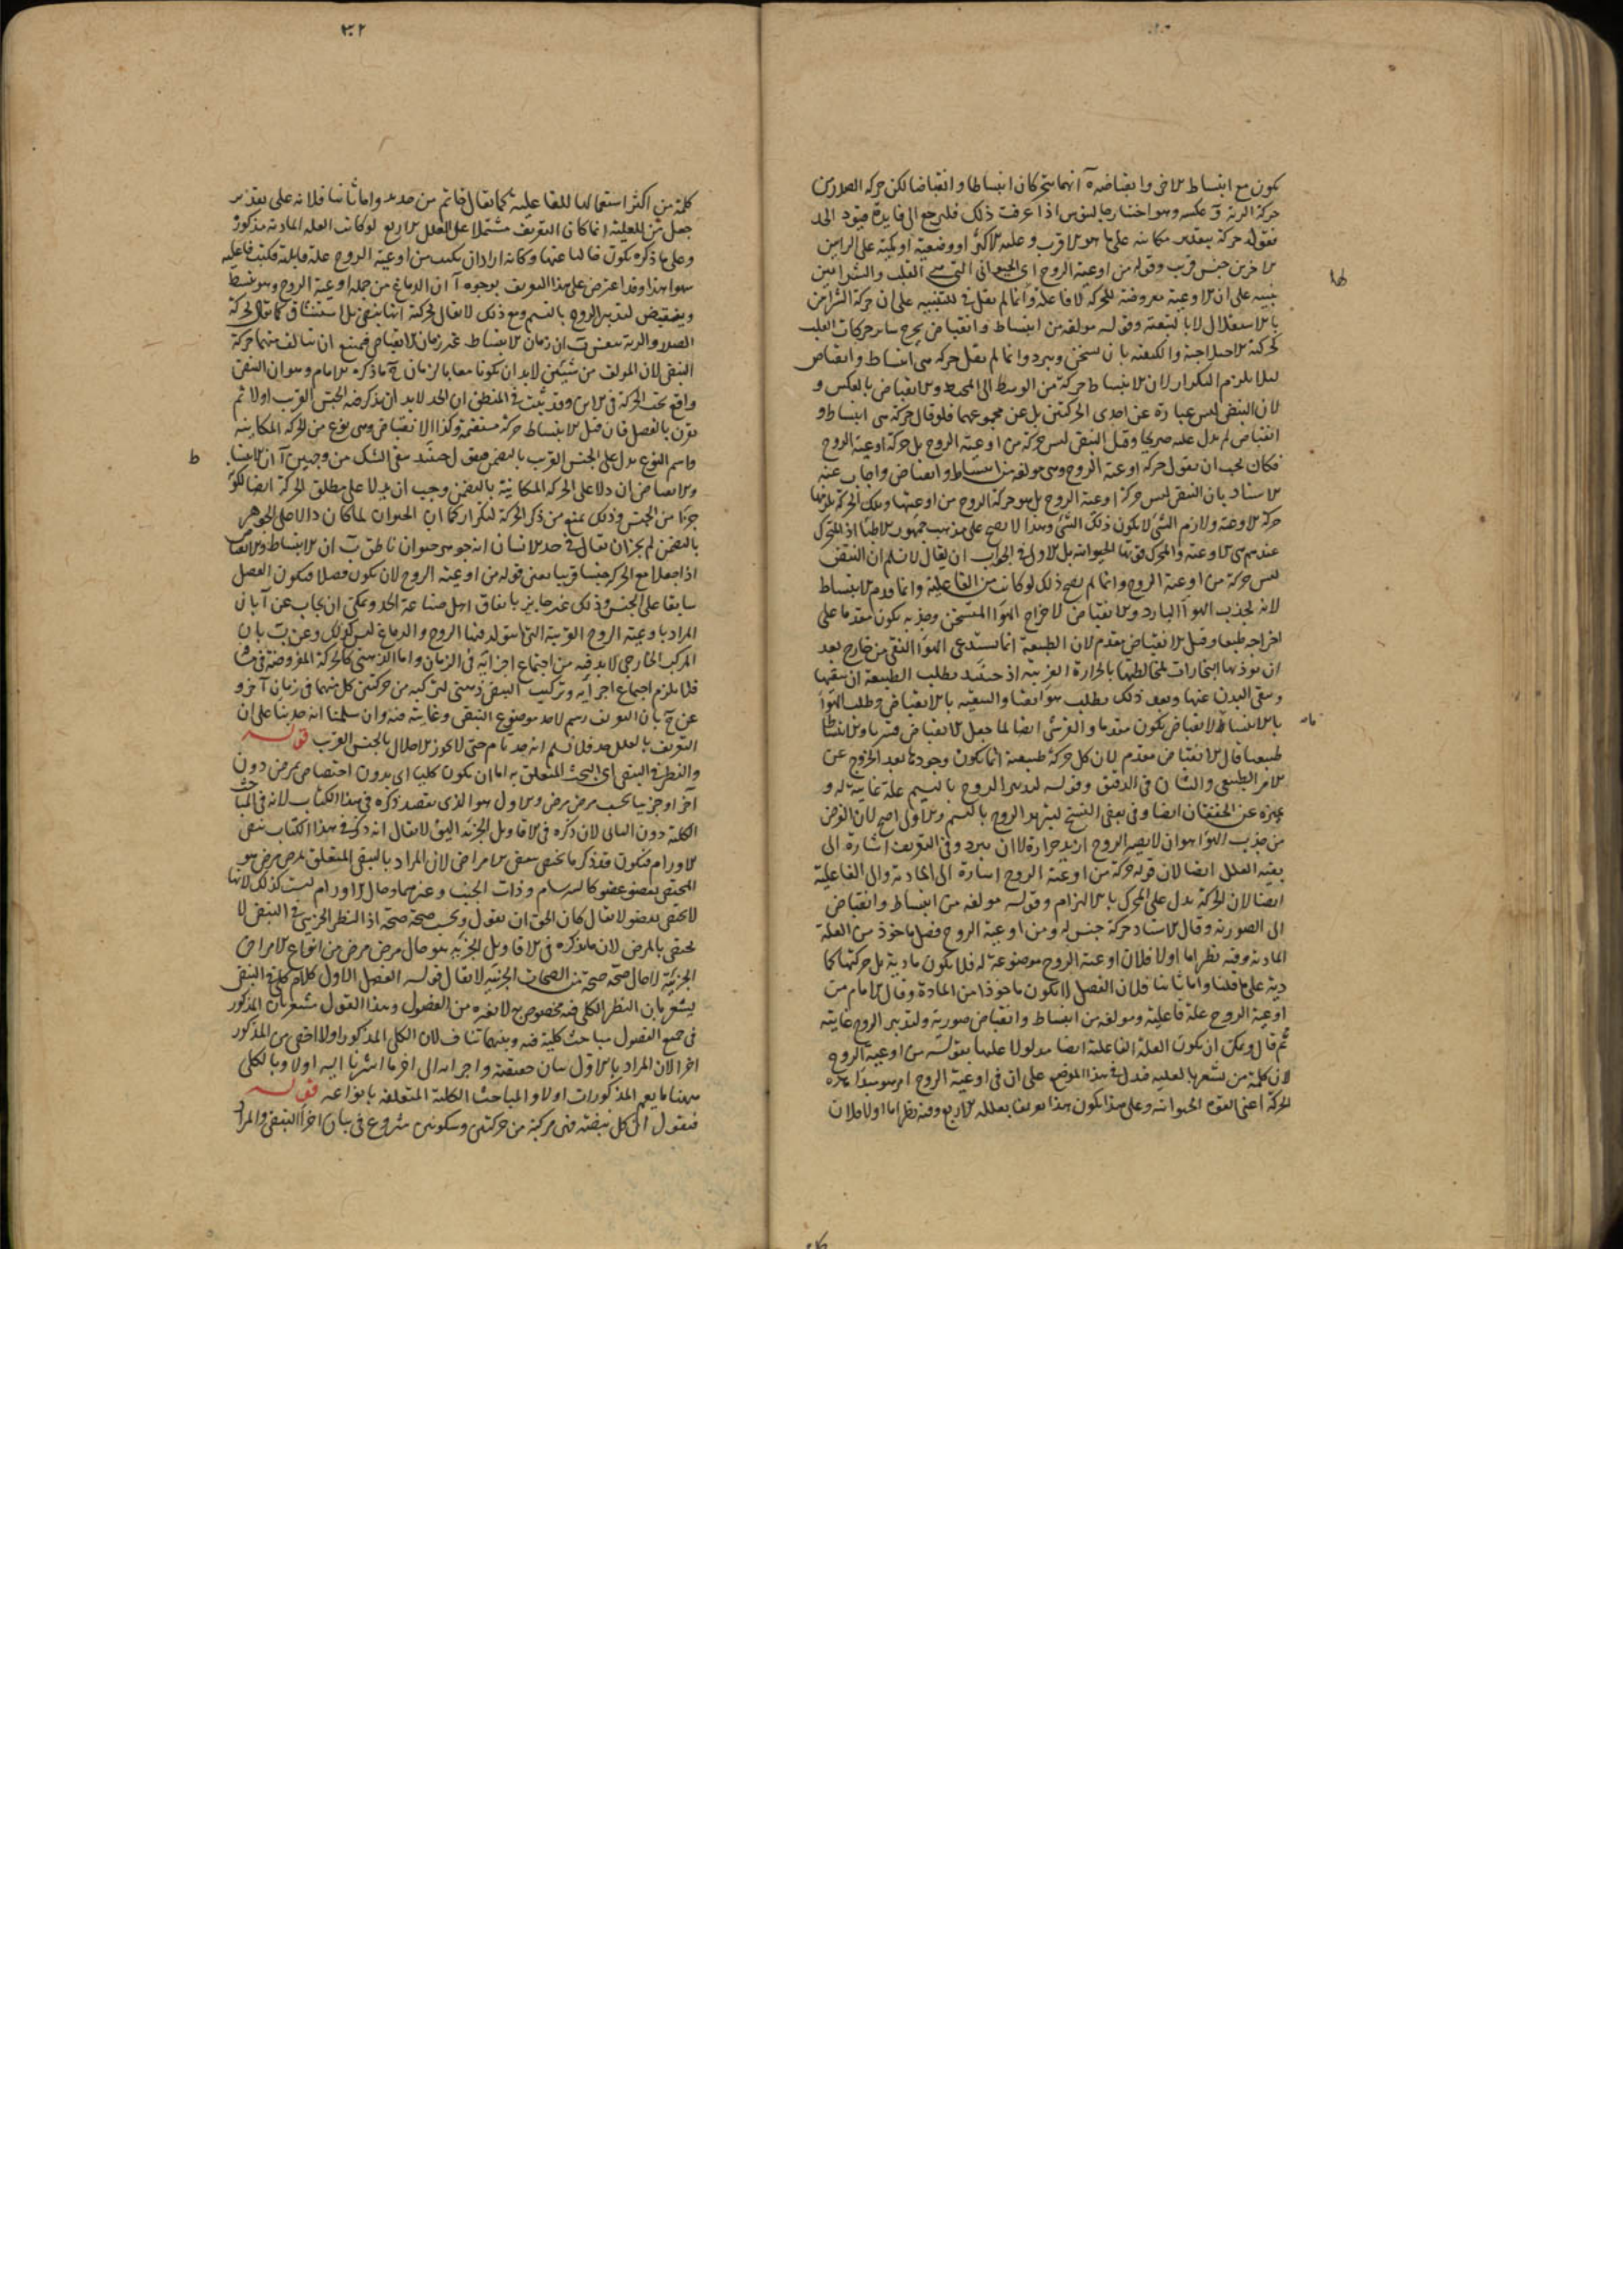 يكون مع انبساط الاخر وانقباضه آ انهما يتحركان انبساطا وانقباضا لكن حركة الصدر من
حركة الرية و عكسه وهو اختيار جالينوس اذا عرفت ذلك فلنرجع الى فايدة قيود الحد
فقوله حركة بتقدير مكانية على ما هو الاقرب وعليه الاكثر او وضعية او كمية على الرايين
الاخرين جنس قريب وقوله من اوعية الروح اى الحيوانى التى هى القلب والشرايين
تنبيه على ان الاوعية معروضة للحركة لا فاعلة وانما لم يقل فى للتنبيه على ان حركة الشرايين
بالاستقلال لا بالتبعية وقوله مولفة من انبساط وانقباض يخرج ساير حركات القلب
كحركته الاختلاجية والكيفية بان يسخن ويبرد وانما لم يقل حركة هى انبساط وانقباض
ليلا يلزم التكرار لان الانبساط حركة من الوسط الى المحيط والانقباض بالعكس و
لان النبض ليس عبارة عن احدى الحركتين بل عن مجموعهما فلو قال حركة هى انبساط و
انقباض لم يدل عليه صريحا وقيل النبض ليس حركة من اوعية الروح بل حركة اوعية الروح
فكان يجب ان يقول حركة اوعية الروح وهى مولفة من انبساط وانقباض واجاب عنه
الاستاد بان النبض ليس حركة اوعية الروح بل هو حركة الروح من اوعيتها وتلك الحركة يلزمها
حركة الاوعية ولازم الشئ لا يكون ذلك الشئ وهذا لا يصح على مذهب جمهور الاطبا اذ المتحرك
عندهم هى الاوعية والمحرك قوتها الحيوانية بل الاولى فى الجواب ان يقال لا نسلم ان النبض
ليس حركة من اوعية الروح وانما لم يصح ذلك لو كانت من الفاعلية وانما قدم الانبساط
لانه لجذب الهوآ البارد والانقباض لاخراج الهوآ المتسخن وجذبه يكون مقدما على
اخراجه طبعا وقيل الانقباض مقدم لان الطبيعة انما تستدعى الهوآ النقى من خارج بعد
ان توذيها البخارات لمخالطتها بالحرارة الغريبة اذ حينئذ يطلب الطبيعة ان ينقيها
وينقى البدن عنها وبعد ذلك يطلب هوآ نقيا والتنقية بالانقباض وطلب الهوآ
بالانبساط فالانقباض يكون مقدما والقرشى ايضا لما جعل الانقباض قسريا والانبساط
طبيعيا قال الانقباض مقدم لان كل حركة طبيعية انما يكون وجودها بعد الخروج عن
الامر الطبيعى والشان فى الدقيق وقوله لتدبير الروح بالنسيم علة غائية له و
يميزه عن الخفقان ايضا وفى بعض النسخ لتبريد الروح بالنسيم والاول اصح لان الغرض
من جذب الهوا هو ان لا يصير الروح ازيد حرارة لا ان يبرد وفى التعريف اشارة الى
بقية العلل ايضا لان قوله حركة من اوعية الروح اشارة الى المادية والى الفاعلية
ايضا لان الحركة يدل على المحرك بالالتزام وقوله مولفة من انبساط وانقباض
الى الصورية وقال الاستاد حركة جنس له ومن اوعية الروح فصل ماخوذ من العلة
المادية وفيه نظر اما اولا فلان اوعية الروح موضوعة له فلا يكون مادية بل حركتها كما
دية على ما قلنا واما ثانيا فلان الفصل لا يكون ماخوذا من المادة وقال الامام من
اوعية الروح علة فاعلية ومولفة من انبساط وانقباض صورية ولتدبير الروح غايية
ثم قال ويمكن ان يكون العلة الفاعلية ايضا مدلولا عليها بقوله من اوعية الروح
لان كلمة من يشعر بالعلية فدل فى هذا الموضع على ان فى اوعية الروح امر هو مبدآ هذه
الحركة اعنى القوة الحيوانية وعلى هذا يكون هذا تعريفا بعلله الاربع وفيه نظر اما اولا فلان
٣٠٢
كلمة من اكثر استعمالها للفاعلية كما يقال خاتم من حديد واما ثانيا فلانه على تقدير
جعل من للعلية انما كان التعريف مشتملا على العلل الاربع لو كانت العلة المادية مذكورة
وعلى ما ذكره يكون خاليا عنها وكانه اراد ان يكتب من اوعية الروح علة قابلية فكتب فاعلية
سهوا هذا وقد اعترض على هذا التعريف بوجوه آ ان الدماغ من جملة اوعية الروح وهو ينبسط
وينقبض لتدبير الروح بالنسيم ومع ذلك لا يقال لحركته انها نبض بل استنشاق كما يقال لحركة
الصدر والرية تنفس ب ان زمان الانبساط غير زمان الانقباض فيمتنع ان يتالف منهما حركة
النبض لان المولف من شيئين لابد ان يكونا معا بالزمان ج ما ذكره الامام وهو ان النبض
واقع تحت الحركة فى الاين وقد ثبت فى المنطق ان الحد لابد ان يذكر فيه الجنس القريب اولا ثم
يقرن بالفصل فان قيل الانبساط حركة مستقيمة وكذا الانقباض وهى نوع من الحركة المكانية
واسم النوع يدل على الجنس القريب بالتضمن فنقول حينئذ يبقى الشك من وجهين آ ان الانبساط
والانقباض ان دلا على الحركة المكانية بالتضمن وجب ان يدلا على مطلق الحركة ايضا لكونه
جزءا من الجنس وذلك يمنع من ذكر الحركة لتكراره كما ان الحيوان لما كان دالا على الجوهر
بالتضمن لم يجز ان يقال فى حد الانسان انه جوهر حيوان ناطق ب ان الانبساط والانقباض
اذا جعلا مع الحركة جنسا قريبا يعنى قوله من اوعية الروح لان يكون فصلا فيكون الفصل
سابقا على الجنس وذلك غير جايز باتفاق اهل صناعة الحد ويمكن ان يجاب عن آ بان
المراد باوعية الروح القريبة التى يتولد فيها الروح والدماغ ليس كذلك وعن ب بان
المركب الخارجى لابد فيه من اجتماع اجزائه فى الزمان واما الذهنى كالحركة المفروضة
فلا يلزم اجتماع اجزائه وتركيب النبض ذهنى لتركيبه من حركتين كل منهما فى زمان آخر و
عن ج بان التعريف رسم لاخذ موضوع النبض وغايته فيه وان سلمنا انه حد بنا على ان
التعريف بالعلل حد فلا نسلم انه حد تام حتى لا يجوز الاخلال بالجنس القريب قوله
والنظر فى النبض اى البحث المتعلق به اما ان يكون كليا اى بدون اختصاص بمرض دون
آخر او جزييا بحسب مرض مرض والاول هو الذى يقصد ذكره فى هذا الكتاب لانه فى المباحث
الكلية دون الثانى لان ذكره فى الاقاويل الجزئية اليق لا يقال انه ذكر فى هذا الكتاب نبض
الاورام فيكون قد ذكر ما يختص ببعض الامراض لان المراد بالنبض المتعلق بمرض مرض هو
المختص بعضو عضو كالسرسام وذات الجنب وغيرهما وحال الاورام ليست كذلك لانها
لا يختص بعضو لا يقال كان الحق ان يقول وبحسب صحة صحة اذ النظر الجزيى فى النبض لا
يختص بالمرض لان ما يذكره فى الاقاويل الجزئية هو حال مرض مرض من انواع الامراض
الجزئية لا حال صحة صحة من الصحات الجزئية لا يقال قوله الفصل الاول كلام كلى فى النبض
يشعر بان النظر الكلى فيه مخصوص به لا بغيره من الفصول وهذا القول مشعر بان المذكور
فى جميع الفصول مباحث كلية فيه وبينهما تناف لان الكلى المذكور اولا اخص من المذكور
اخرا لان المراد بالاول بيان حقيقته واجزائه الى اخر ما اشرنا اليه اولا وبالكلى
ههنا ما يعم المذكورات اولا والمباحث الكلية المتعلقة بانواعه قوله
فنقول ان كل نبضة فهى مركبة من حركتين وسكونين شروع فى بيان اجزآ النبض والمراد